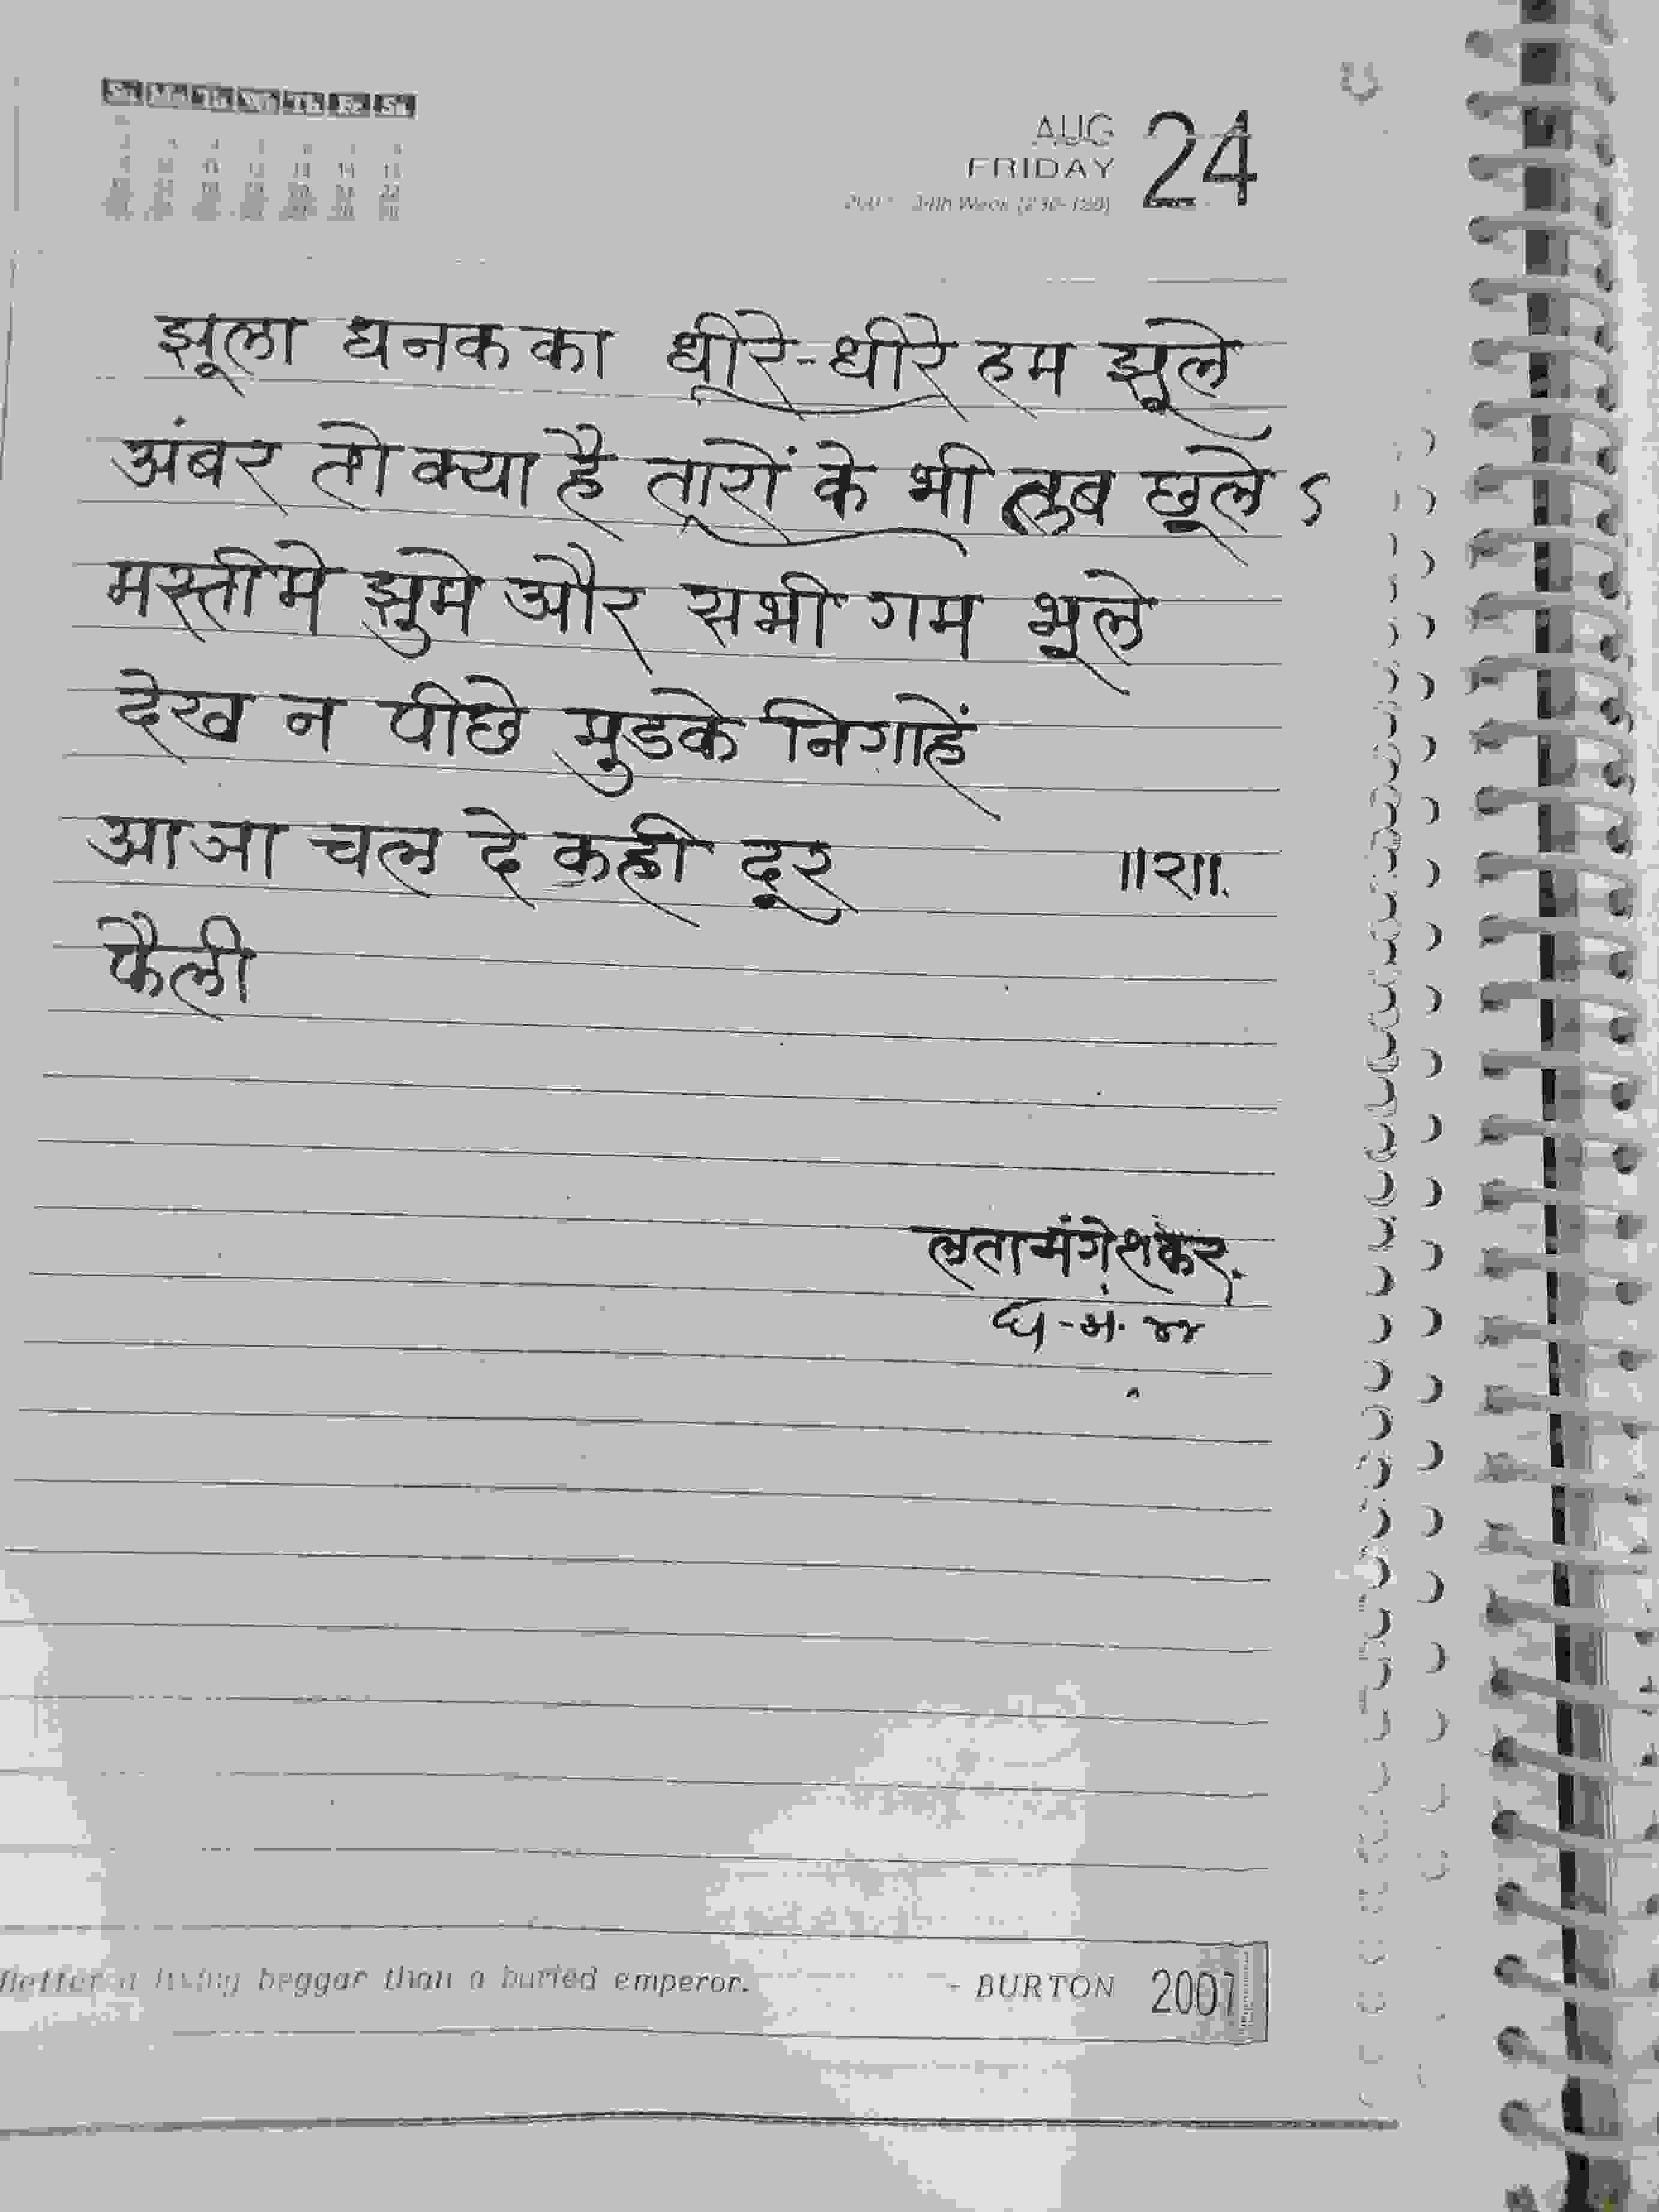 Su Mo Tu We Th Fr Sa
AUG
FRIDAY 24
34th Week
झूला धनक का धीरे-धीरे हम झूले
अंबर तो क्या है तारों के भी लब छूले ऽ
मस्तीमे झुमे और सभी गम भूले
देख न पीछे मुडके निगाहें
आजा चल दे कही दूर ॥२॥
फैली
लता मंगेशकर
Better a living beggar than a buried emperor. - BURTON 2007